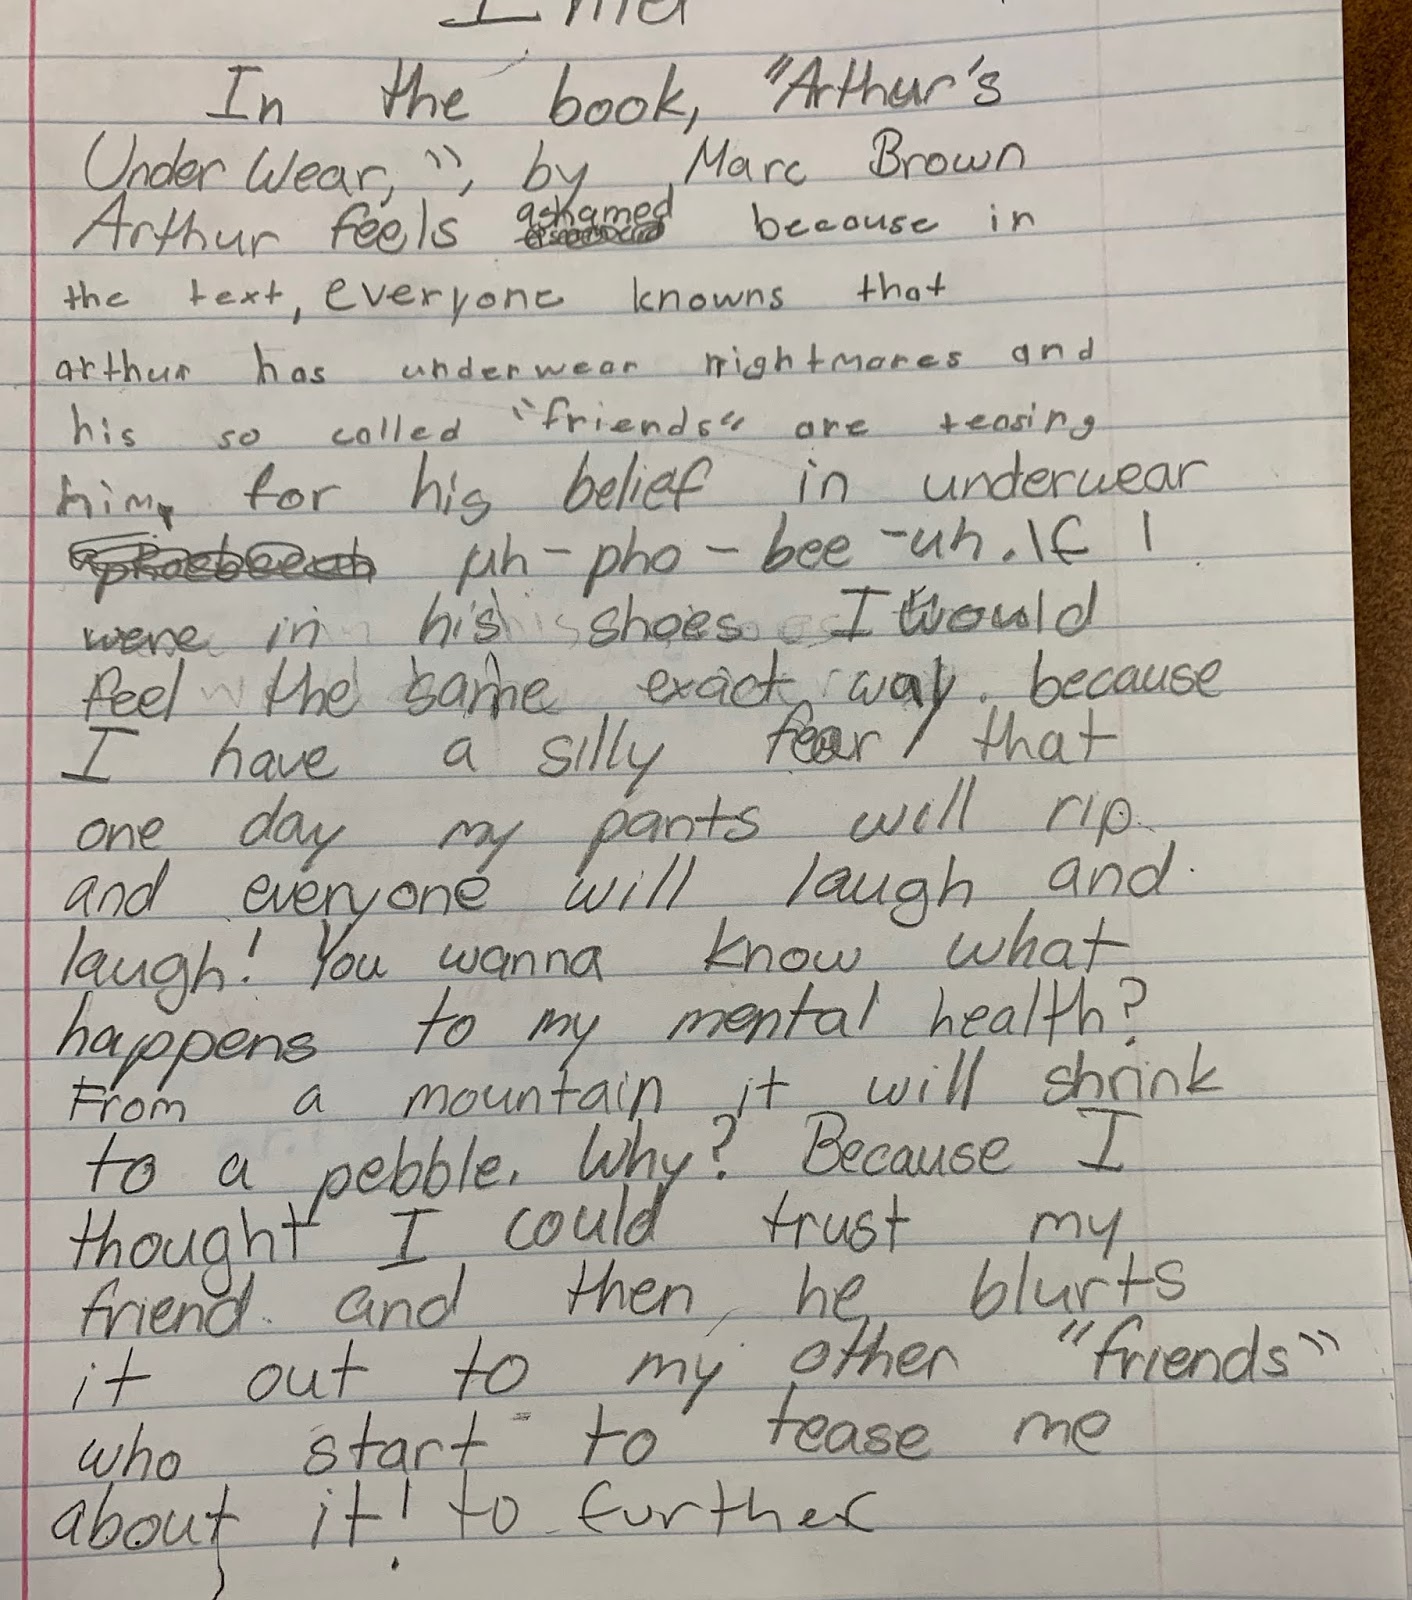 In the book, "Arthur's
Under Wear,", by Marc Brown
Arthur feels ashamed because in
the text, everyone knowns that
arthur has underwear nightmares and
his so called "friends" are teasing
him, for his belief in underwear
uh-pho-bee-uh. If I
were in his shoes I would
feel the same exact way. because
I have a silly fear that
one day my pants will rip
and everyone will laugh and
laugh! You wanna know what
happens to my mental health?
From a mountain it will shrink
to a pebble. Why? Because I
thought I could trust my
friend and then he blurts
it out to my other "friends"
who start to tease me
about it! to further